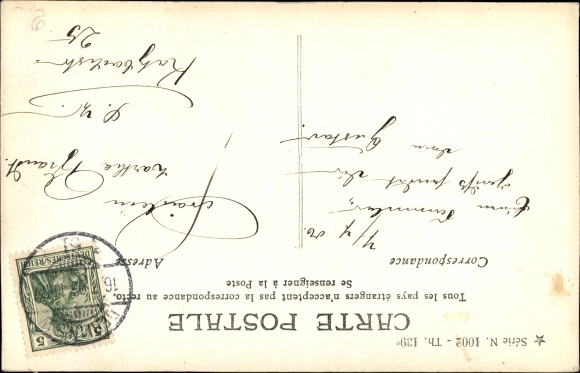 ★ Série N. 1002 - Th. 139e
CARTE POSTALE
Tous les pays étrangers n'acceptent pas la correspondance au recto.
Se renseigner à la Poste
Correspondance
Adresse
DEUTSCHES REICH
5
7/4 06.
Gruß sendet Dir
Dein Gustav.
Fräulein
Martha Brandt.
25